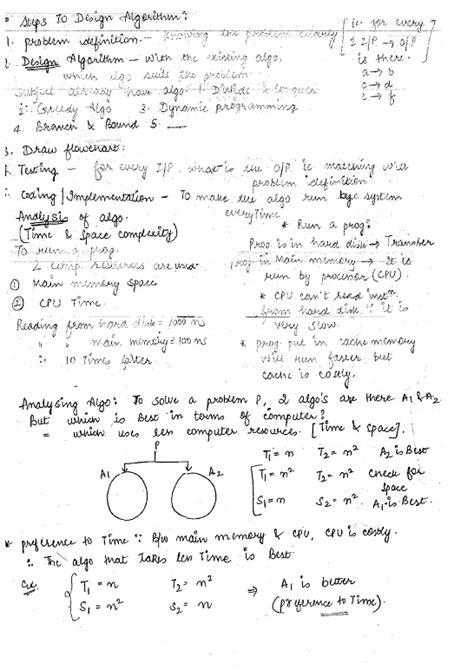 * Steps To Design Algorithm:
1. Problem definition. - Knowing the problem clearly [ie. for every
1 I/P → O/P
is there.
a → b
c → d
e → f]
2. Design Algorithm - With the existing algo,
which algo suits the problem.
Subject already have algo 1. Divide & conquer
2. Greedy Algo 3. Dynamic programming
4. Branch & Bound 5. —
3. Draw flowchart:
4. Testing - for every I/P what is the O/P ie matching with
problem definition
: Coding/Implementation - To make the algo run by system
everytime
Analysis of algo.
(Time & Space complexity)
To run a prog.
2 comp. resources are used
① Main memory space
② CPU Time.
Reading from hard disk = 1000 ns
" main memory = 100 ns
∴ 10 Times faster
* Run a prog:
Prog is in hard disk → Transfer
prog in Main memory → It is
run by processor (CPU).
* CPU can't read instn
from hard disk ∵ it is
very slow.
* prog put in cache memory
will run faster but
cache is costly.
Analysing Algo: To solve a problem P, 2 algo's are there A1 & A2
But which is Best in terms of computer?
= which uses less computer resources. [Time & space].
P
A1 A2
T1 = n T2 = n² A2 is Best
T1 = n² T2 = n² Check for
space
S1 = n S2 = n² A1 is Best.
* preference to Time ∵ B/w main memory & CPU, CPU is costly.
∴ The algo that Takes less Time is Best
T1 = n T2 = n²
S1 = n² S2 = n
⇒ A1 is better
(preference to Time).